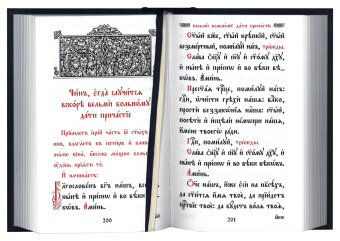 Чи́нъ, є҆гда̀ слꙋчи́тсѧ
вско́рѣ вельмѝ больно́мꙋ
да́ти прича́стїе
Прїе́млетъ і҆ере́й ча́сть ст҃ы́хъ
И҆ начина́етъ:
Бл҃гослове́нъ бг҃ъ на́шъ, всегда̀,
ны́нѣ и҆ при́снѡ и҆ во вѣ́ки вѣ-
кѡ́въ. А҆ми́нь.
200
вельмѝ больно́мꙋ да́ти прича́стїе
Ст҃ы́й бж҃е, ст҃ы́й крѣ́пкїй, ст҃ы́й
безсме́ртный, поми́лꙋй на́съ, три́жды.
Сла́ва ѻ҆ц҃ꙋ̀ и҆ сн҃ꙋ и҆ ст҃о́мꙋ дх҃ꙋ, и҆
ны́нѣ и҆ при́снѡ и҆ во вѣ́ки вѣ-
кѡ́въ. А҆ми́нь.
Прест҃а́ѧ трⷪ҇це, поми́лꙋй на́съ:
гдⷭ҇и, ѡ҆чи́сти грѣхѝ на́шѧ: влⷣко,
простѝ беззакѡ́нїѧ на̑ша: ст҃ы́й,
посѣтѝ и҆ и҆сцѣлѝ не́мѡщи на́шѧ,
и҆́мене твоегѡ̀ ра́ди.
Гдⷭ҇и, поми́лꙋй, три́жды.
Сла́ва ѻ҆ц҃ꙋ̀ и҆ сн҃ꙋ и҆ ст҃о́мꙋ дх҃ꙋ, и҆
ны́нѣ и҆ при́снѡ и҆ во вѣ́ки вѣкѡ́въ.
А҆ми́нь.
Ѻ҆́ч҃е на́шъ, и҆́же є҆сѝ на нб҃сѣ́хъ,
да ст҃и́тсѧ и҆́мѧ твоѐ, да прїи́детъ
црⷭ҇твїе твоѐ: да бꙋ́детъ во́лѧ твоѧ̀,
201